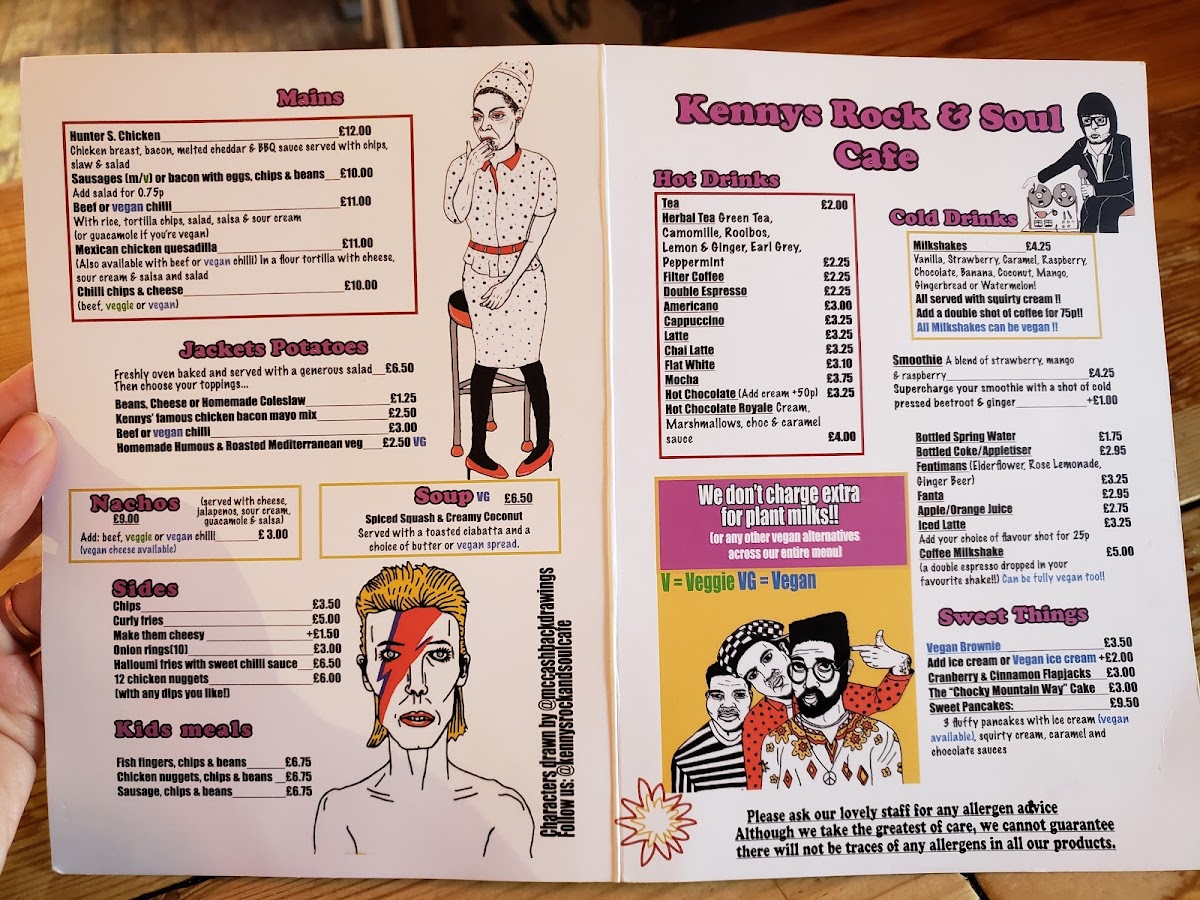 Mains
Hunter S. Chicken £12.00
Chicken breast, bacon, melted cheddar & BBQ sauce served with chips,
slaw & salad
Sausages (m/v) or bacon with eggs, chips & beans £10.00
Add salad for 0.75p
Beef or vegan chilli £11.00
With rice, tortilla chips, salad, salsa & sour cream
(or guacamole if you're vegan)
Mexican chicken quesadilla £11.00
(Also available with beef or vegan chilli) In a flour tortilla with cheese,
sour cream & salsa and salad
Chilli chips & cheese £10.00
(beef, veggie or vegan)
Jackets Potatoes
Freshly oven baked and served with a generous salad £6.50
Then choose your toppings...
Beans, Cheese or Homemade Coleslaw £1.25
Kennys' famous chicken bacon mayo mix £2.50
Beef or vegan chilli £3.00
Homemade Humous & Roasted Mediterranean veg £2.50 VG
Nachos
£9.00
(served with cheese,
jalapenos, sour cream,
guacamole & salsa)
Add: beef, veggie or vegan chilli £ 3.00
(vegan cheese available)
Soup VG £6.50
Spiced Squash & Creamy Coconut
Served with a toasted ciabatta and a
choice of butter or vegan spread.
Sides
Chips £3.50
Curly fries £5.00
Make them cheesy +£1.50
Onion rings(10) £3.00
Halloumi fries with sweet chilli sauce £6.50
12 chicken nuggets £6.00
(with any dips you like!)
Kids meals
Fish fingers, chips & beans £6.75
Chicken nuggets, chips & beans £6.75
Sausage, chips & beans £6.75
Characters drawn by @mccashbackdrawings
Follow us: @kennysrockandsoulcafe
Kennys Rock & Soul
Cafe
Hot Drinks
Tea £2.00
Herbal Tea Green Tea,
Camomille, Rooibos,
Lemon & Ginger, Earl Grey,
Peppermint £2.25
Filter Coffee £2.25
Double Espresso £2.25
Americano £3.00
Cappuccino £3.25
Latte £3.25
Chai Latte £3.25
Flat White £3.10
Mocha £3.75
Hot Chocolate (Add cream +50p) £3.25
Hot Chocolate Royale Cream,
Marshmallows, choc & caramel
sauce £4.00
We don't charge extra
for plant milks!!
(or any other vegan alternatives
across our entire menu)
V = Veggie VG = Vegan
Cold Drinks
Milkshakes £4.25
Vanilla, Strawberry, Caramel, Raspberry,
Chocolate, Banana, Coconut, Mango,
Gingerbread or Watermelon!
All served with squirty cream !!
Add a double shot of coffee for 75p!!
All Milkshakes can be vegan !!
Smoothie A blend of strawberry, mango
& raspberry £4.25
Supercharge your smoothie with a shot of cold
pressed beetroot & ginger +£1.00
Bottled Spring Water £1.75
Bottled Coke/Appletiser £2.95
Fentimans (Elderflower, Rose Lemonade,
Ginger Beer) £3.25
Fanta £2.95
Apple/Orange Juice £2.75
Iced Latte £3.25
Add your choice of flavour shot for 25p
Coffee Milkshake £5.00
(a double espresso dropped in your
favourite shake!!) Can be fully vegan too!!
Sweet Things
Vegan Brownie £3.50
Add ice cream or Vegan ice cream +£2.00
Cranberry & Cinnamon Flapjacks £3.00
The "Chocky Mountain Way" Cake £3.00
Sweet Pancakes: £9.50
3 fluffy pancakes with ice cream (vegan
available), squirty cream, caramel and
chocolate sauces
Please ask our lovely staff for any allergen advice
Although we take the greatest of care, we cannot guarantee
there will not be traces of any allergens in all our products.